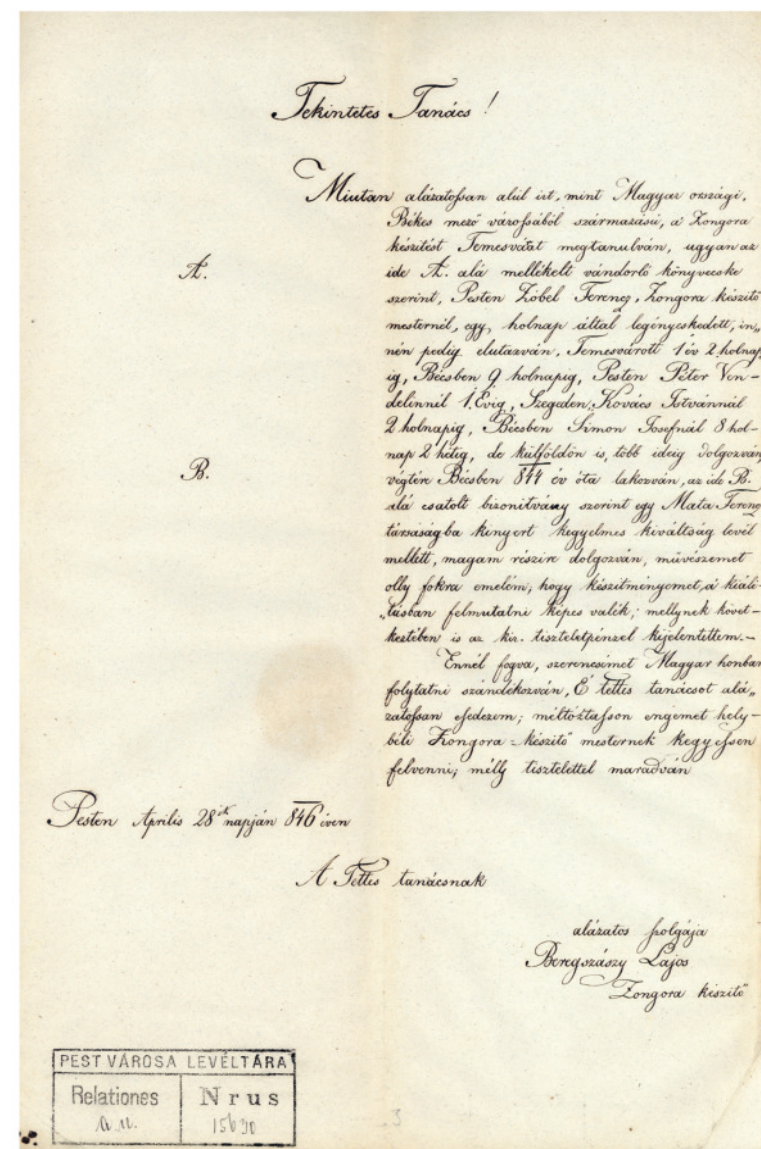 Tekintetes Tanács!
Miután alázatossan alúl irt, mint Magyar országi,
Békes mező városából származású, a' Zongora
készitést Temesvátat megtanulván, ugyan az
A.
ide A. alá mellékelt vándorló könyvecske
szerint, Pesten Zóbel Ferencz, Zongora készitő
mesternél, egy holnap által legényeskedett, in„
nén pedig elutazván, Temesvárott 1 év 2 holnap
ig, Bécsben 9 holnapig, Pesten Péter Ven-
delinnél 1. Évig, Szegeden, Kovács Istvánnál
2 holnapig, Bécsben Simon Josefnál 8 hol-
nap 2 hétig, de külföldön is, több ideig dolgozván,
B.
végtére Bécsben 844 év óta lakozván, az ide B.
alá csatolt bizonitvány szerint egy Mata Ferencz
társaságba kinyert kegyelmes kiváltság levél
mellett, magam részire dolgozván, művészemet
olly fokra emelém; hogy készitményemet, a' kiáli-
„tásban felmutatni képes valék; mellynek követ-
keztében is az kir. tiszteletpénzel kijelentettem.-
Ennél fogva, szerencsémet Magyar honban
folytatni szándékozván, É tettes tanácsot alá„
zatossan esedezem; méltóztasson engemet hely-
béli Zongora-készitő mesternek kegyessen
felvenni; mélly tisztelettel maradván
Pesten Április 28ik napján 846 éven
A Tettes tanácsnak
alázatos szolgája
Beregszászy Lajos
Zongora készitő
PEST VÁROSA LEVÉLTÁRA
Relationes Nrus
a. n. 15690
3